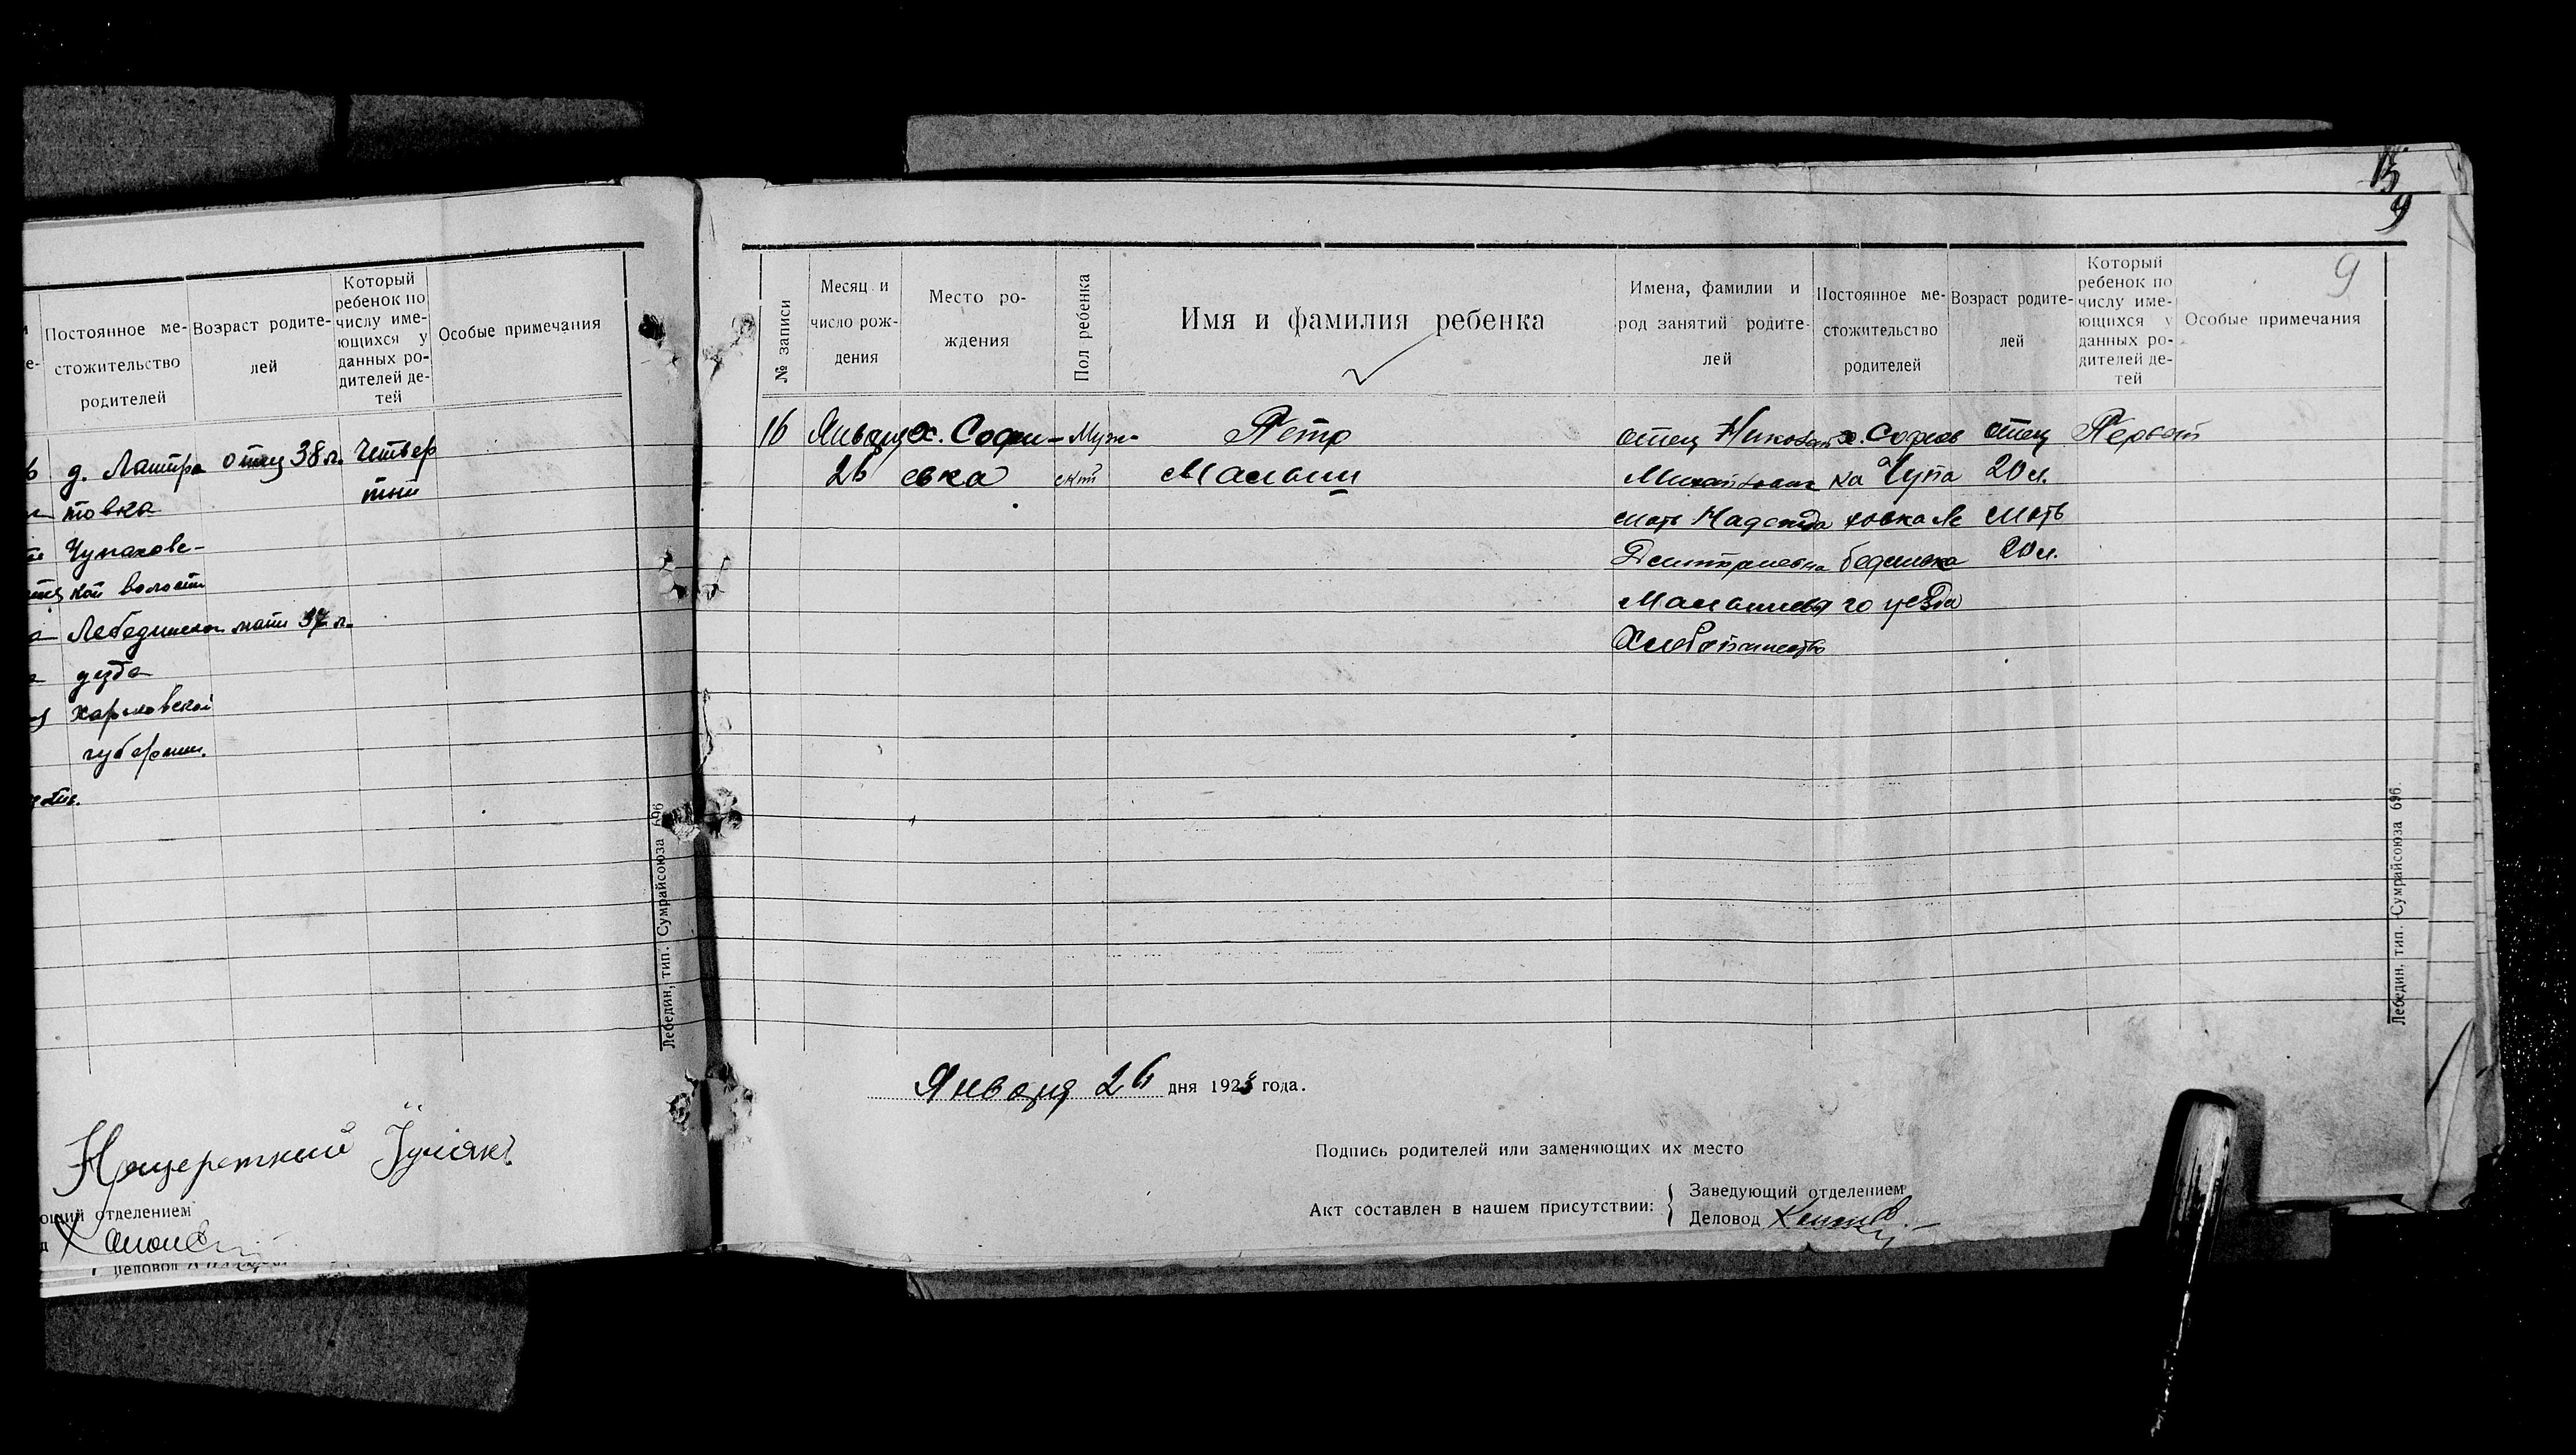 Постоянное ме-
стожительство
родителей
Возраст родите-
лей
Который
ребенок по
числу име-
ющихся у
данных ро-
дителей де-
тей
Особые примечания
д. Лантра
товка
Чупаховс-
кой волости
Лебединско
уезда
Харьковской
губернии.
отец 38 л.
мать 37 л.
Четвер
тый
Лебедин, тип. Сумрайсоюза 696
отделением
Деловод
15
9
9
№ записи
Месяц и
число рож-
дения
Место ро-
ждения
Пол ребенка
Имя и фамилия ребенка
Имена, фамилии и
род занятий родите-
лей
Постоянное ме-
стожительство
родителей
Возраст родите-
лей
Который
ребенок по
числу име-
ющихся у
данных ро-
дителей де-
тей
Особые примечания
16
Января
26
х. Софи-
евка
Муж-
ский
Петр
отец Николай
Михайлович
мать Надежда
Дмитриевна
Хлебопашество
х. Софиев
ка Чупа
ховка Ле
бединско
го уезда
отец
20 л.
мать
20 л.
Первый
Января 26 дня 1923 года.
Подпись родителей или заменяющих их место
Акт составлен в нашем присутствии:
Заведующий отделением
Деловод
Лебедин, тип. Сумрайсоюза 696.